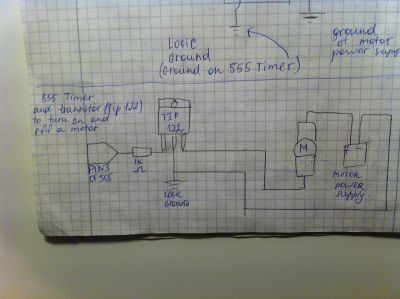 Logic
Ground
(Ground on 555 Timer)
ground
of motor
power supp
555 Timer
and transistor (tip 122)
to turn on and
off a motor
TIP
122
PIN 3
of 555
1K
Ω
Logic
Ground
M
+ -
MOTOR
power
supply.